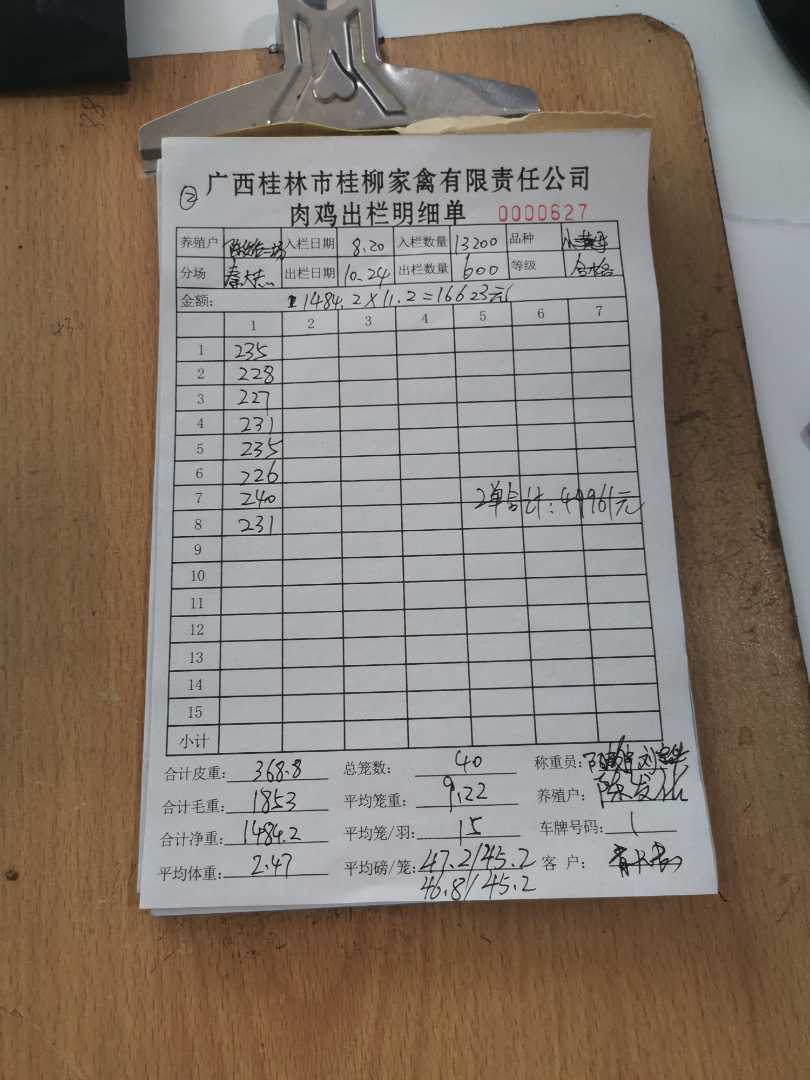 ② 广西桂林市桂柳家禽有限责任公司
肉鸡出栏明细单 0000627
养殖户 入栏日期 8.20 入栏数量 13200 品种
分场 出栏日期 10.24 出栏数量 600 等级 合格
金额: 1484.2×11.2=16623元
1 2 3 4 5 6 7
1 235
2 228
3 227
4 231
5 235
6 226
7 240 2单合计:49961元
8 231
9
10
11
12
13
14
15
小计
合计皮重: 368.8 总笼数: 40 称重员:
合计毛重: 1853 平均笼重: 9.22 养殖户: 陈发
合计净重: 1484.2 平均笼/羽: 15 车牌号码: 1
平均体重: 2.47 平均磅/笼: 47.2/45.2 客户:
46.8/45.2